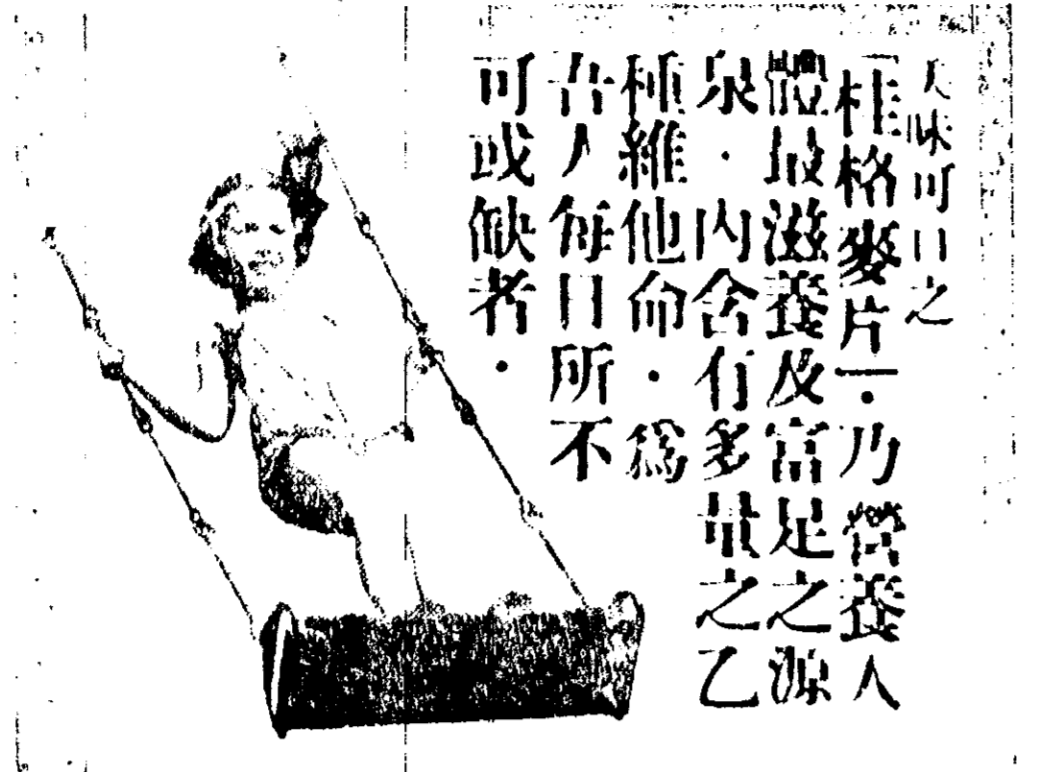 美味可口之
「桂格麥片」·乃營養人
體最滋養及富足之源
泉·內含有多量之乙
種維他命·爲
吾人每日所不
可或缺者·